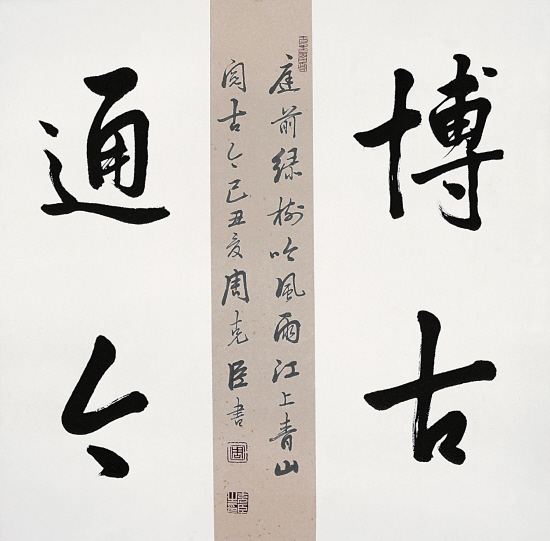 博古
通今
庭前绿树吟風雨江上青山
阅古今己丑夏周克臣書
周